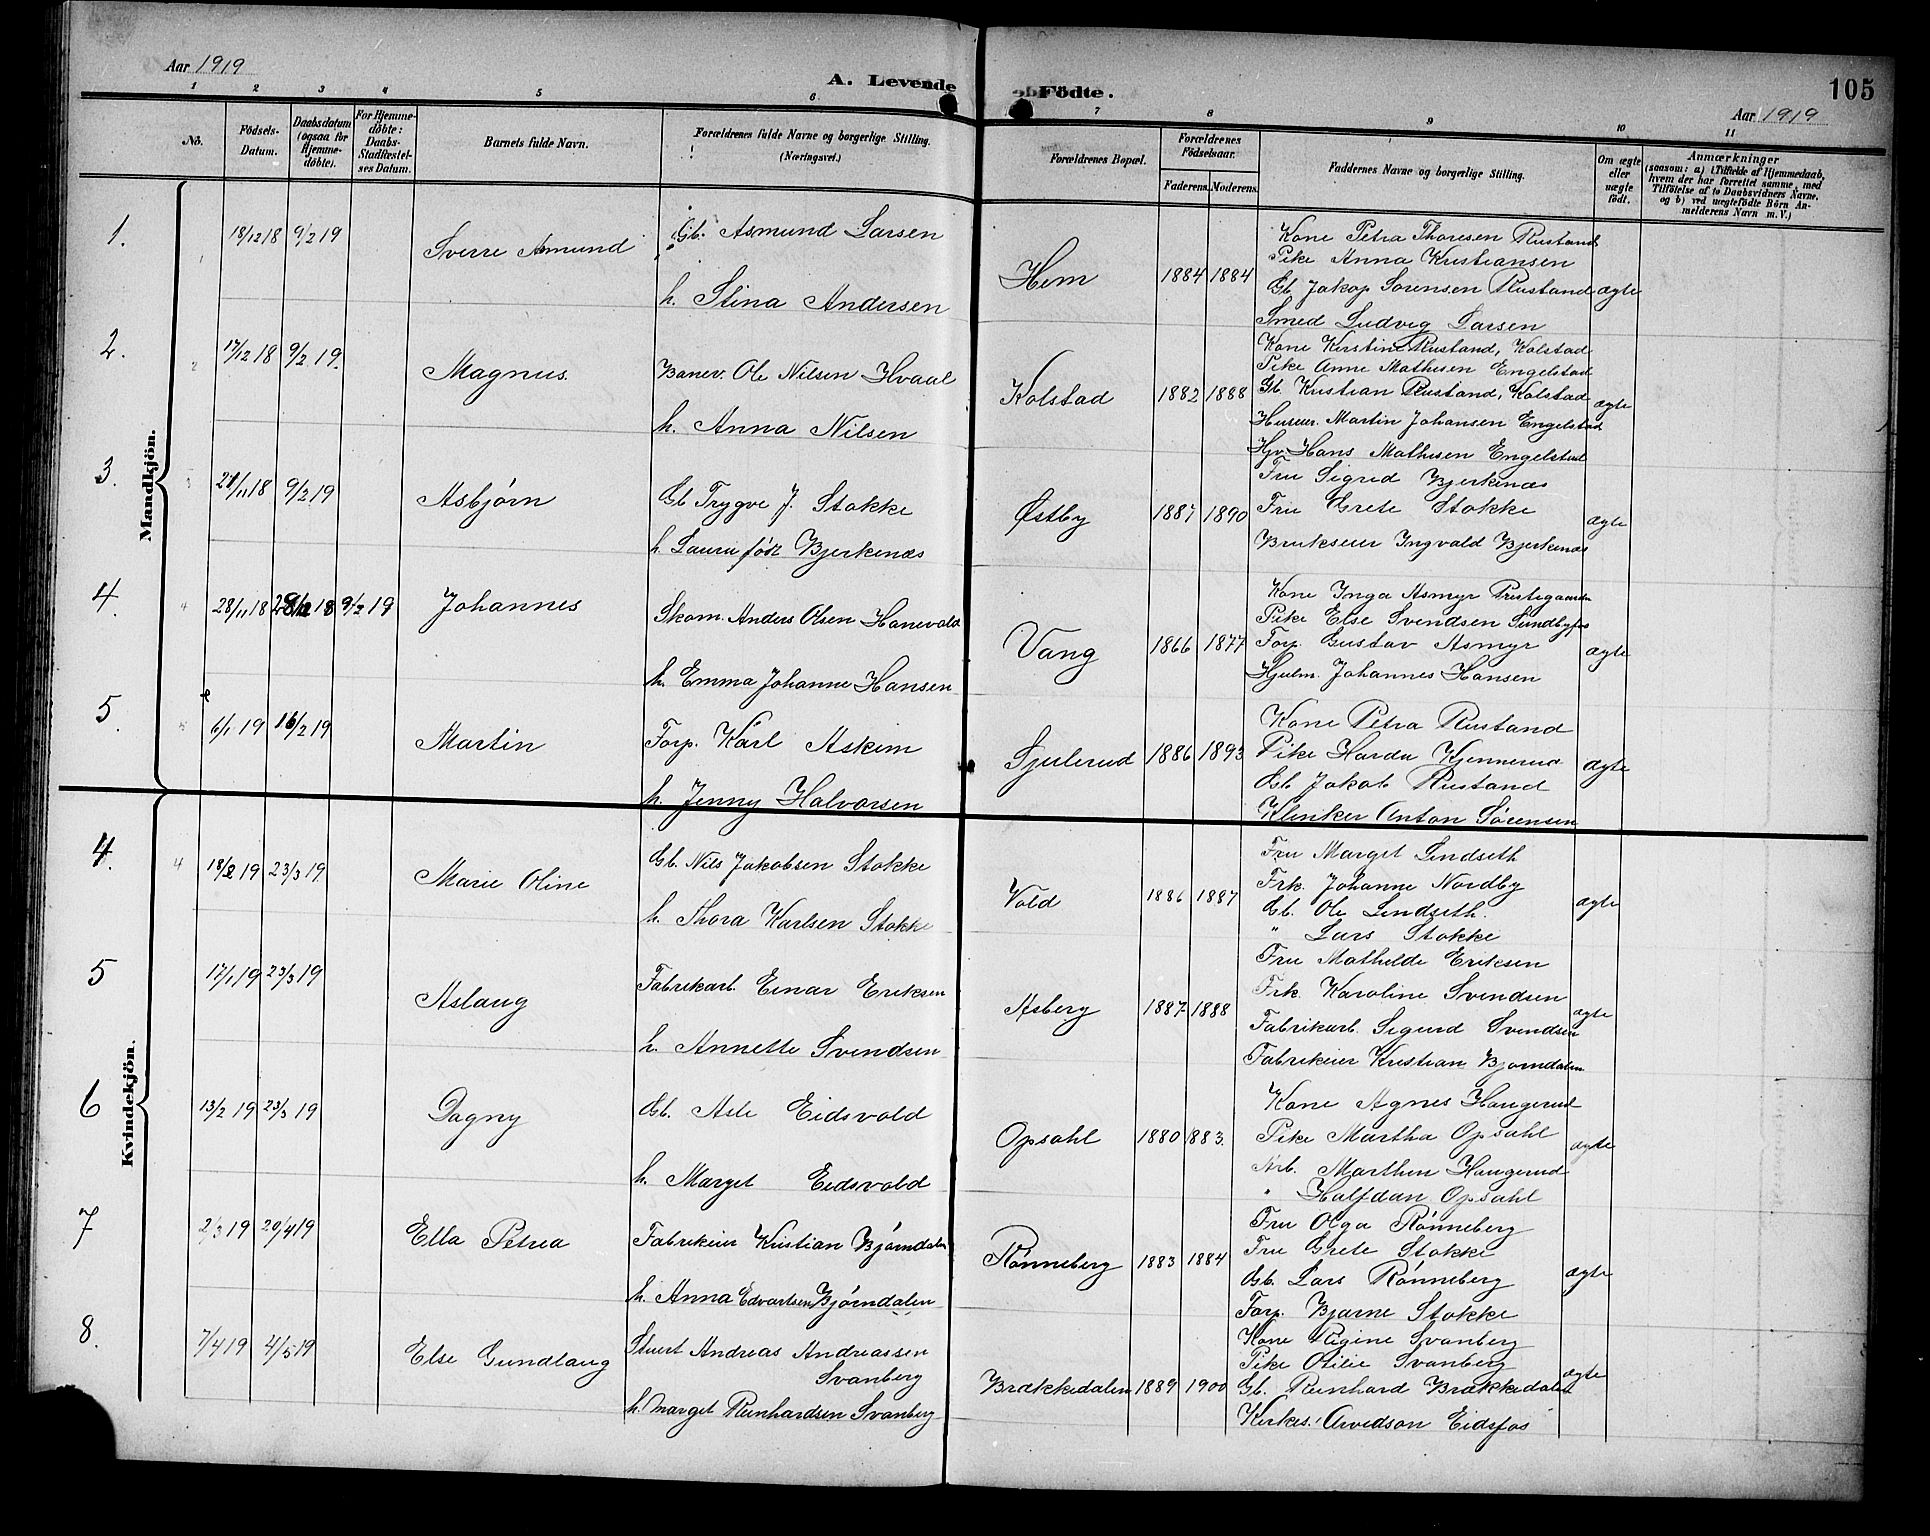 Aar 1919
A. Levende Födte.
105
Aar 1919
1 2 3 4 5 6 7 8 9 10 11
No.
Födsels-Datum.
Daabsdatum (ogsaa for Hjemmedöbte).
For Hjemmedöbte: Daabs-Stadfæstelses Datum.
Barnets fulde Navn.
Forældrenes fulde Navne og borgerlige Stilling. (Næringsvei.)
Forældrenes Bopæl.
Forældrenes Födselsaar.
Faderens. Moderens.
Faddernes Navne og borgerlige Stilling.
Om ægte eller uægte födt.
Anmærkninger
(saasom: a) i Tilfælde af Hjemmedaab, hvem der har forrettet samme, med Tilföielse af to Daabsvidners Navne, og b) ved uægtefödte Börn Anmelderens Navn m. V.)
Mandkjön.
1. 18/12 18 9/2 19 Sverre Amund
Gb. Asmund Larsen
h. Stina Andersen
Hem 1884 1884
Kone Petra Thoresen Rustand
Pike Anna Kristiansen
Gb. Jakop Sorensen Rustand ægte
Smed Ludvig Larsen
2. 17/12 18 9/2 19. Magnus.
Banev. Ole Nilsen Hvaal
h. Anna Nilsen
Kolstad 1882 1888
Kone Kirstine Rustand, Kolstad
Pike Anne Mathisen Engelstad
Gb. Kristian Rustand, Kolstad ægte
Huseier. Martin Johansen Engelstad
Gjv. Hans Mathisen Engelstad
3. 21/11 18 9/2 19 Asbjørn
Gb Trygve J. Stokke
h. Laura født Bjerkenæs
Østby 1887 1890
Fru Sigrid Bjerkenæs
Fru Grete Stokke ægte
Brukseier Ingvald Bjerkenæs
4. 28/11 18 28/12 18 9/2 19 Johannes
Skom. Anders Olsen Hanevold
h. Emma Johanne Hansen
Vang 1866 1877
Kone Inga Asmyr Prestegaarden
Pike Else Svendsen Sundbyfos
Forp. Gustav Asmyr ægte
Hjulm. Johannes Hansen
5. 6/1 19 16/2 19 Martin
Forp. Karl Askim
h. Jenny Halvorsen
Sjulerud 1886 1893
Kone Petra Rustand
Pike Harda Kjennerud ægte
Gb Jakob Rustand
Klinker Anton Sørensen
Kvindekjön.
4. 18/2 19 23/3 19 Marie Oline
Gb. Nils Jakobsen Stokke
h. Thora Karlsen Stokke
Vold 1886 1887
Fru Marget Lindseth
Frk. Johanne Nordby
Gb. Ole Lindseth. ægte
" Lars Stokke
5 17/1 19 23/3 19 Aslaug
Fabrikarb. Einar Eriksen
h. Annette Svendsen
Asberg 1887 1888
Fru Mathilde Eriksen
Frk. Karoline Svendsen ægte
Fabrikarb. Sigurd Svendsen
Fabrikeier Kristian Bjorndalen
6 13/2 19 23/3 19 Dagny
Gb. Asle Eidsvold
h. Marget Eidsvold
Opsahl 1880 1883.
Kone Agnes Haugerud
Pike Martha Opsahl ægte
Arb. Marthin Haugerud
" Halfdan Opsahl
7 2/3 19 20/4 19 Ella Petrea
Fabrikeier Kristian Bjørndalen
h. Anna Edvartsen Bjørndalen
Rønneberg 1883 1884
Fru Olga Rønneberg
Fru Grete Stokke
Gb. Lars Rønneberg ægte
Forp. Bjarne Stokke
8. 7/4 19 4/5 19 Else Gundlaug
Stuert Andreas Andreassen
Svanberg
h. Marget Reinhardsen Svanberg
Brækkedalen 1889 1900
Kone Regine Svanberg
Pike Otilie Svanberg ægte
Gb. Reinhard Brækkedalen
Kirkes. Arvedson Eidsfos